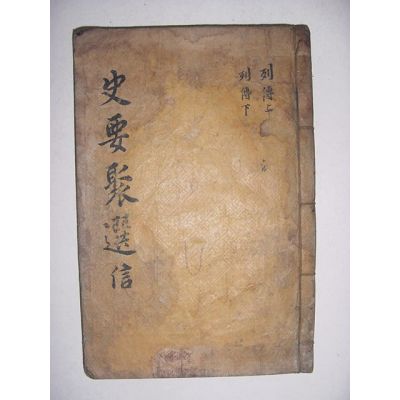 列傳上
列傳下
史要聚選 信